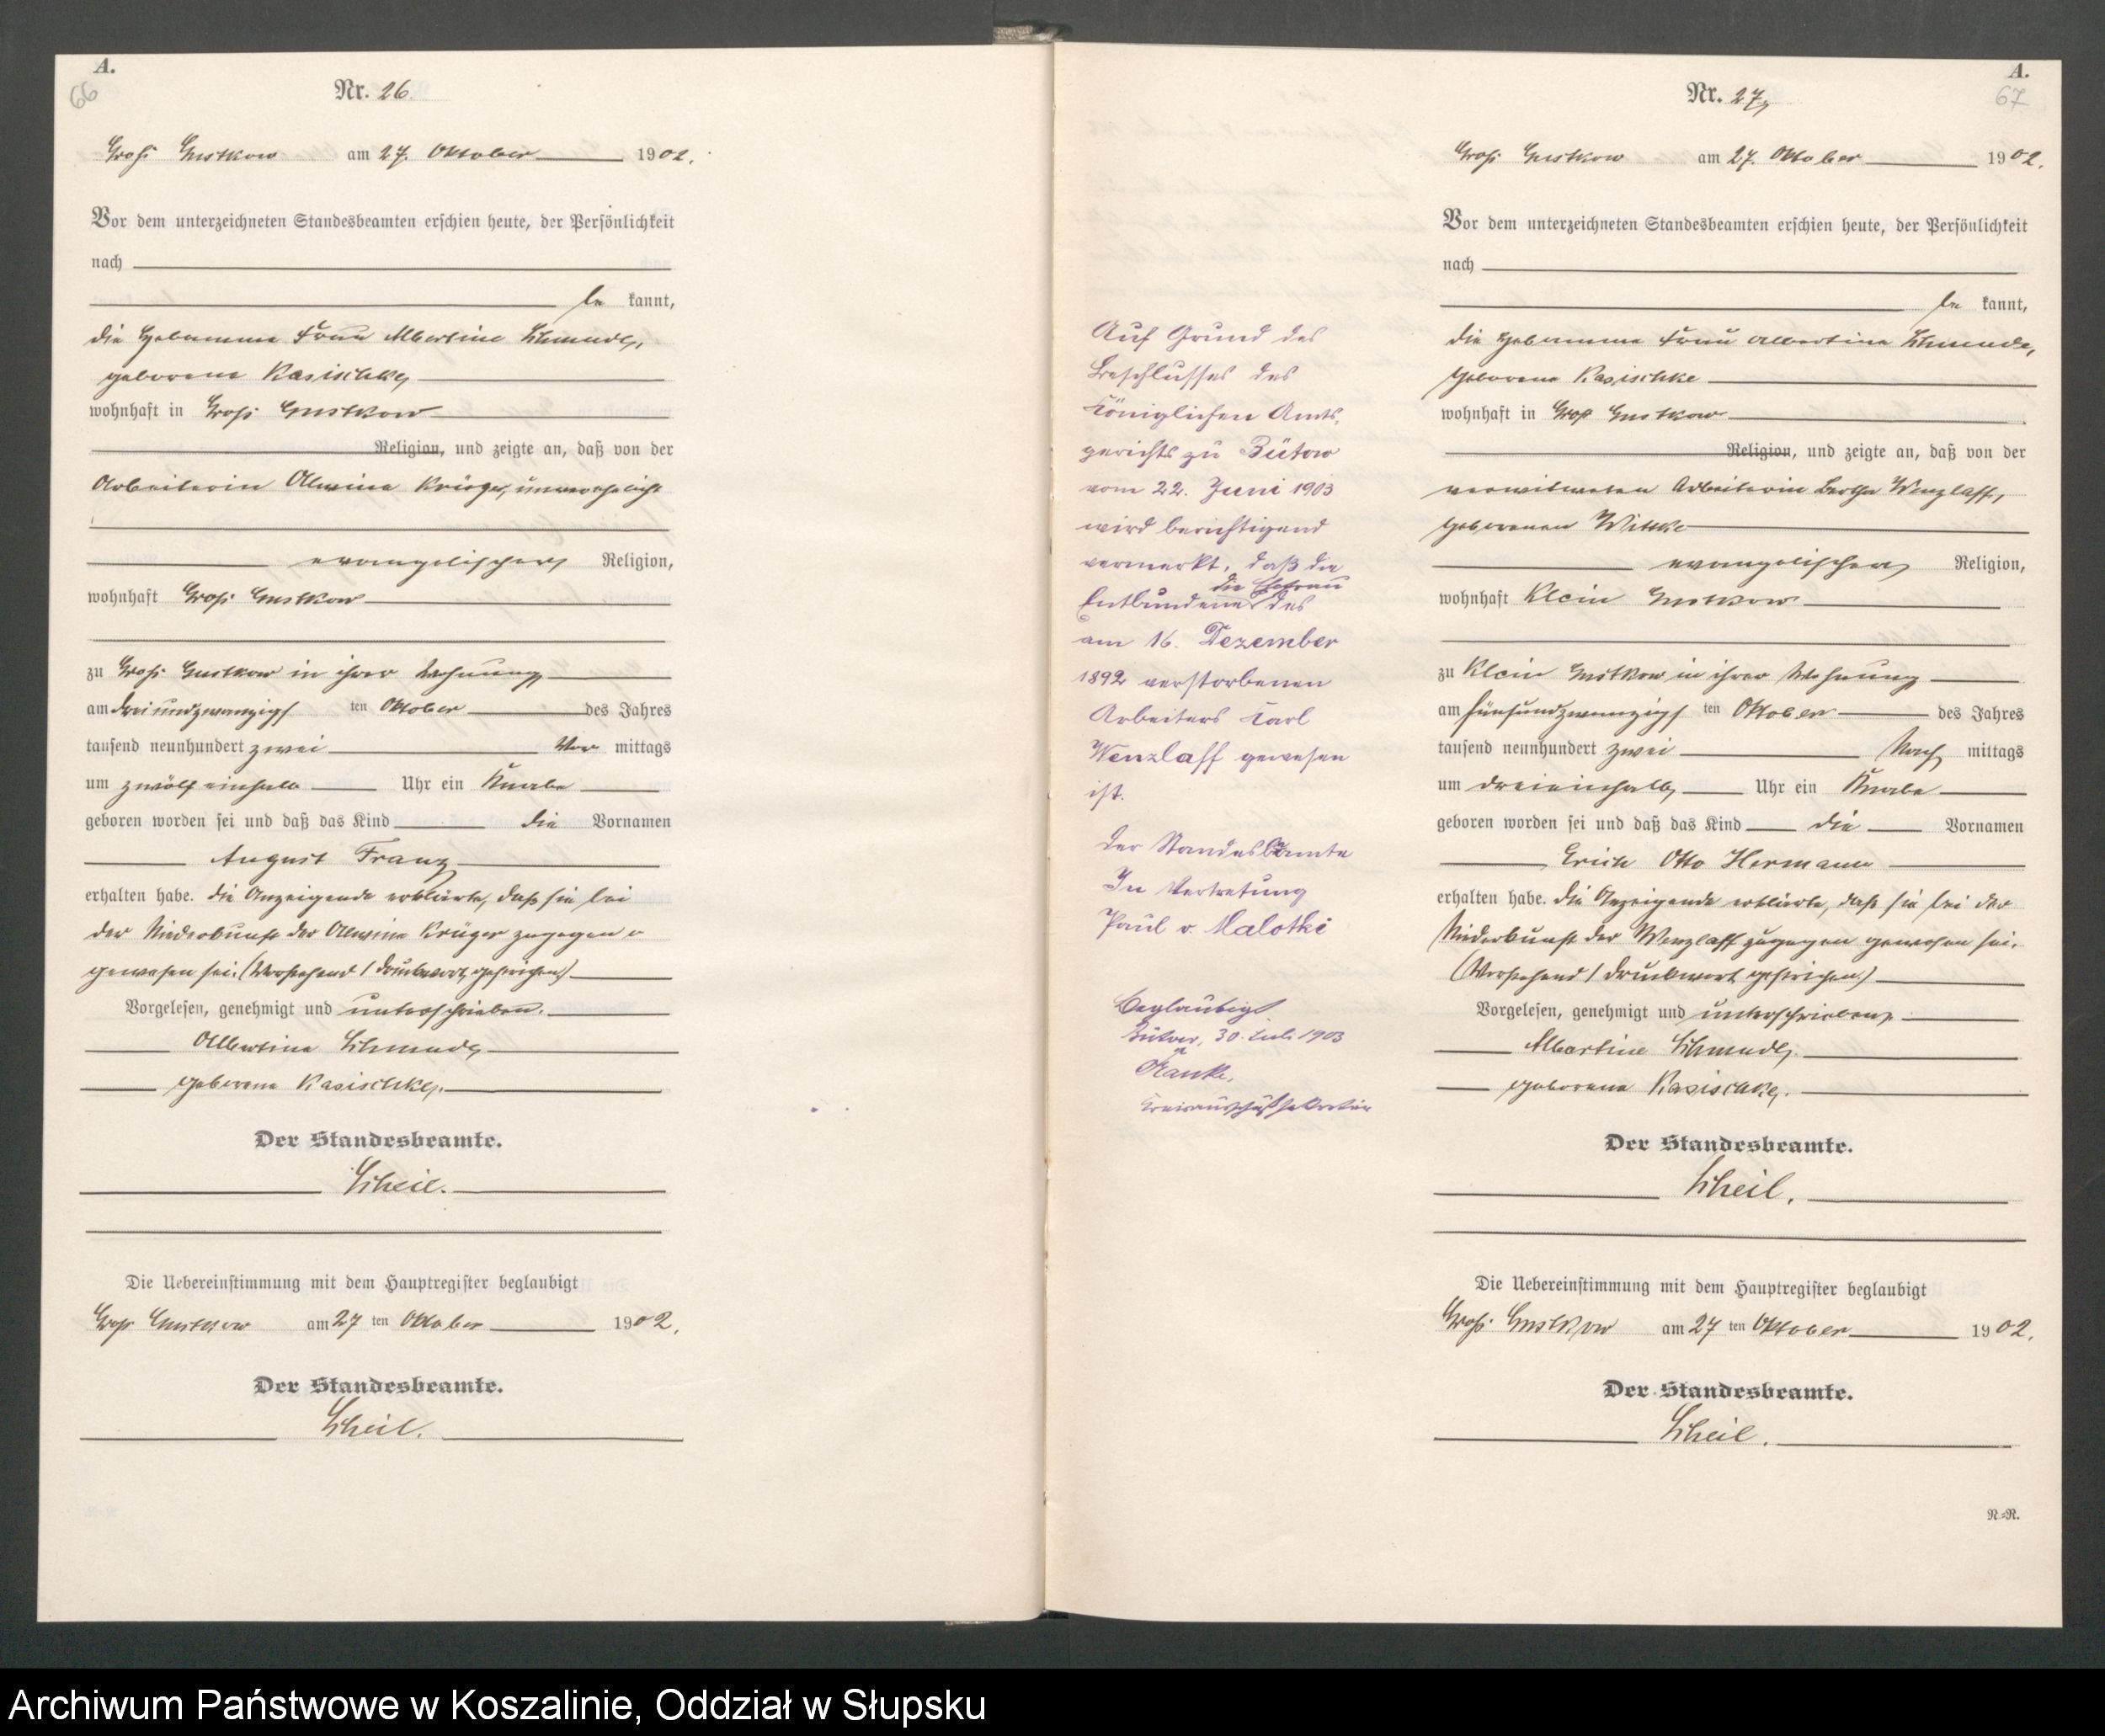 A.
66
Nr. 26.
Groß Gustkow am 27. Oktober 1902.
Vor dem unterzeichneten Standesbeamten erschien heute, der Persönlichkeit
nach
be kannt,
die Hebamme Frau Albertine Schmude,
geborene Kasischke
wohnhaft in Groß Gustkow
Religion, und zeigte an, daß von der
Arbeiterin Alwine Krüger, unverehelicht
evangelischer Religion,
wohnhaft Groß Gustkow
zu Groß Gustkow in ihrer Wohnung
am dreiundzwanzigsten Oktober des Jahres
tausend neunhundert zwei Vor mittags
um zwölf einhalb Uhr ein Knabe
geboren worden sei und daß das Kind die Vornamen
August Franz
erhalten habe. Die Anzeigende erklärte, daß sie bei
der Niederkunft der Alwine Krüger zugegen
gewesen sei. (Vorstehend 1 Druckwort gestrichen.)
Vorgelesen, genehmigt und unterschrieben.
Albertine Schmude
geborene Kasischke.
Der Standesbeamte.
Scheil.
Die Uebereinstimmung mit dem Hauptregister beglaubigt
Groß Gustkow am 27 ten Oktober 1902.
Der Standesbeamte.
Scheil.
Auf Grund des
Beschlusses des
Königlichen Amts-
gerichts zu Bütow
vom 22. Juni 1903
wird berichtigend
vermerkt, daß die
die Ehefrau
Entbundene des
am 16. Dezember
1892 verstorbenen
Arbeiters Karl
Wenzlaff gewesen
ist.
Der Standesbeamte
In Vertretung
Paul v. Malotki
Beglaubigt
Bütow, 30. Juli 1903
Kreisausschußsekretär
A.
67
Nr. 27.
Groß Gustkow am 27. Oktober 1902.
Vor dem unterzeichneten Standesbeamten erschien heute, der Persönlichkeit
nach
be kannt,
die Hebamme Frau Albertine Schmude,
geborene Kasischke
wohnhaft in Groß Gustkow
Religion, und zeigte an, daß von der
verwitweten Arbeiterin Bertha Wenzlaff,
geborenen Wittke
evangelischer Religion,
wohnhaft Klein Gustkow
zu Klein Gustkow in ihrer Wohnung
am fünfundzwanzigsten Oktober des Jahres
tausend neunhundert zwei Nach mittags
um dreieinhalb Uhr ein Knabe
geboren worden sei und daß das Kind die Vornamen
Erich Otto Hermann
erhalten habe. Die Anzeigende erklärte, daß sie bei der
Niederkunft der Wenzlaff zugegen gewesen sei.
(Vorstehend 1 Druckwort gestrichen.)
Vorgelesen, genehmigt und unterschrieben.
Albertine Schmude.
geborene Kasischke.
Der Standesbeamte.
Scheil.
Die Uebereinstimmung mit dem Hauptregister beglaubigt
Groß Gustkow am 27 ten Oktober 1902.
Der Standesbeamte.
Scheil.
N=R.
Archiwum Państwowe w Koszalinie, Oddział w Słupsku